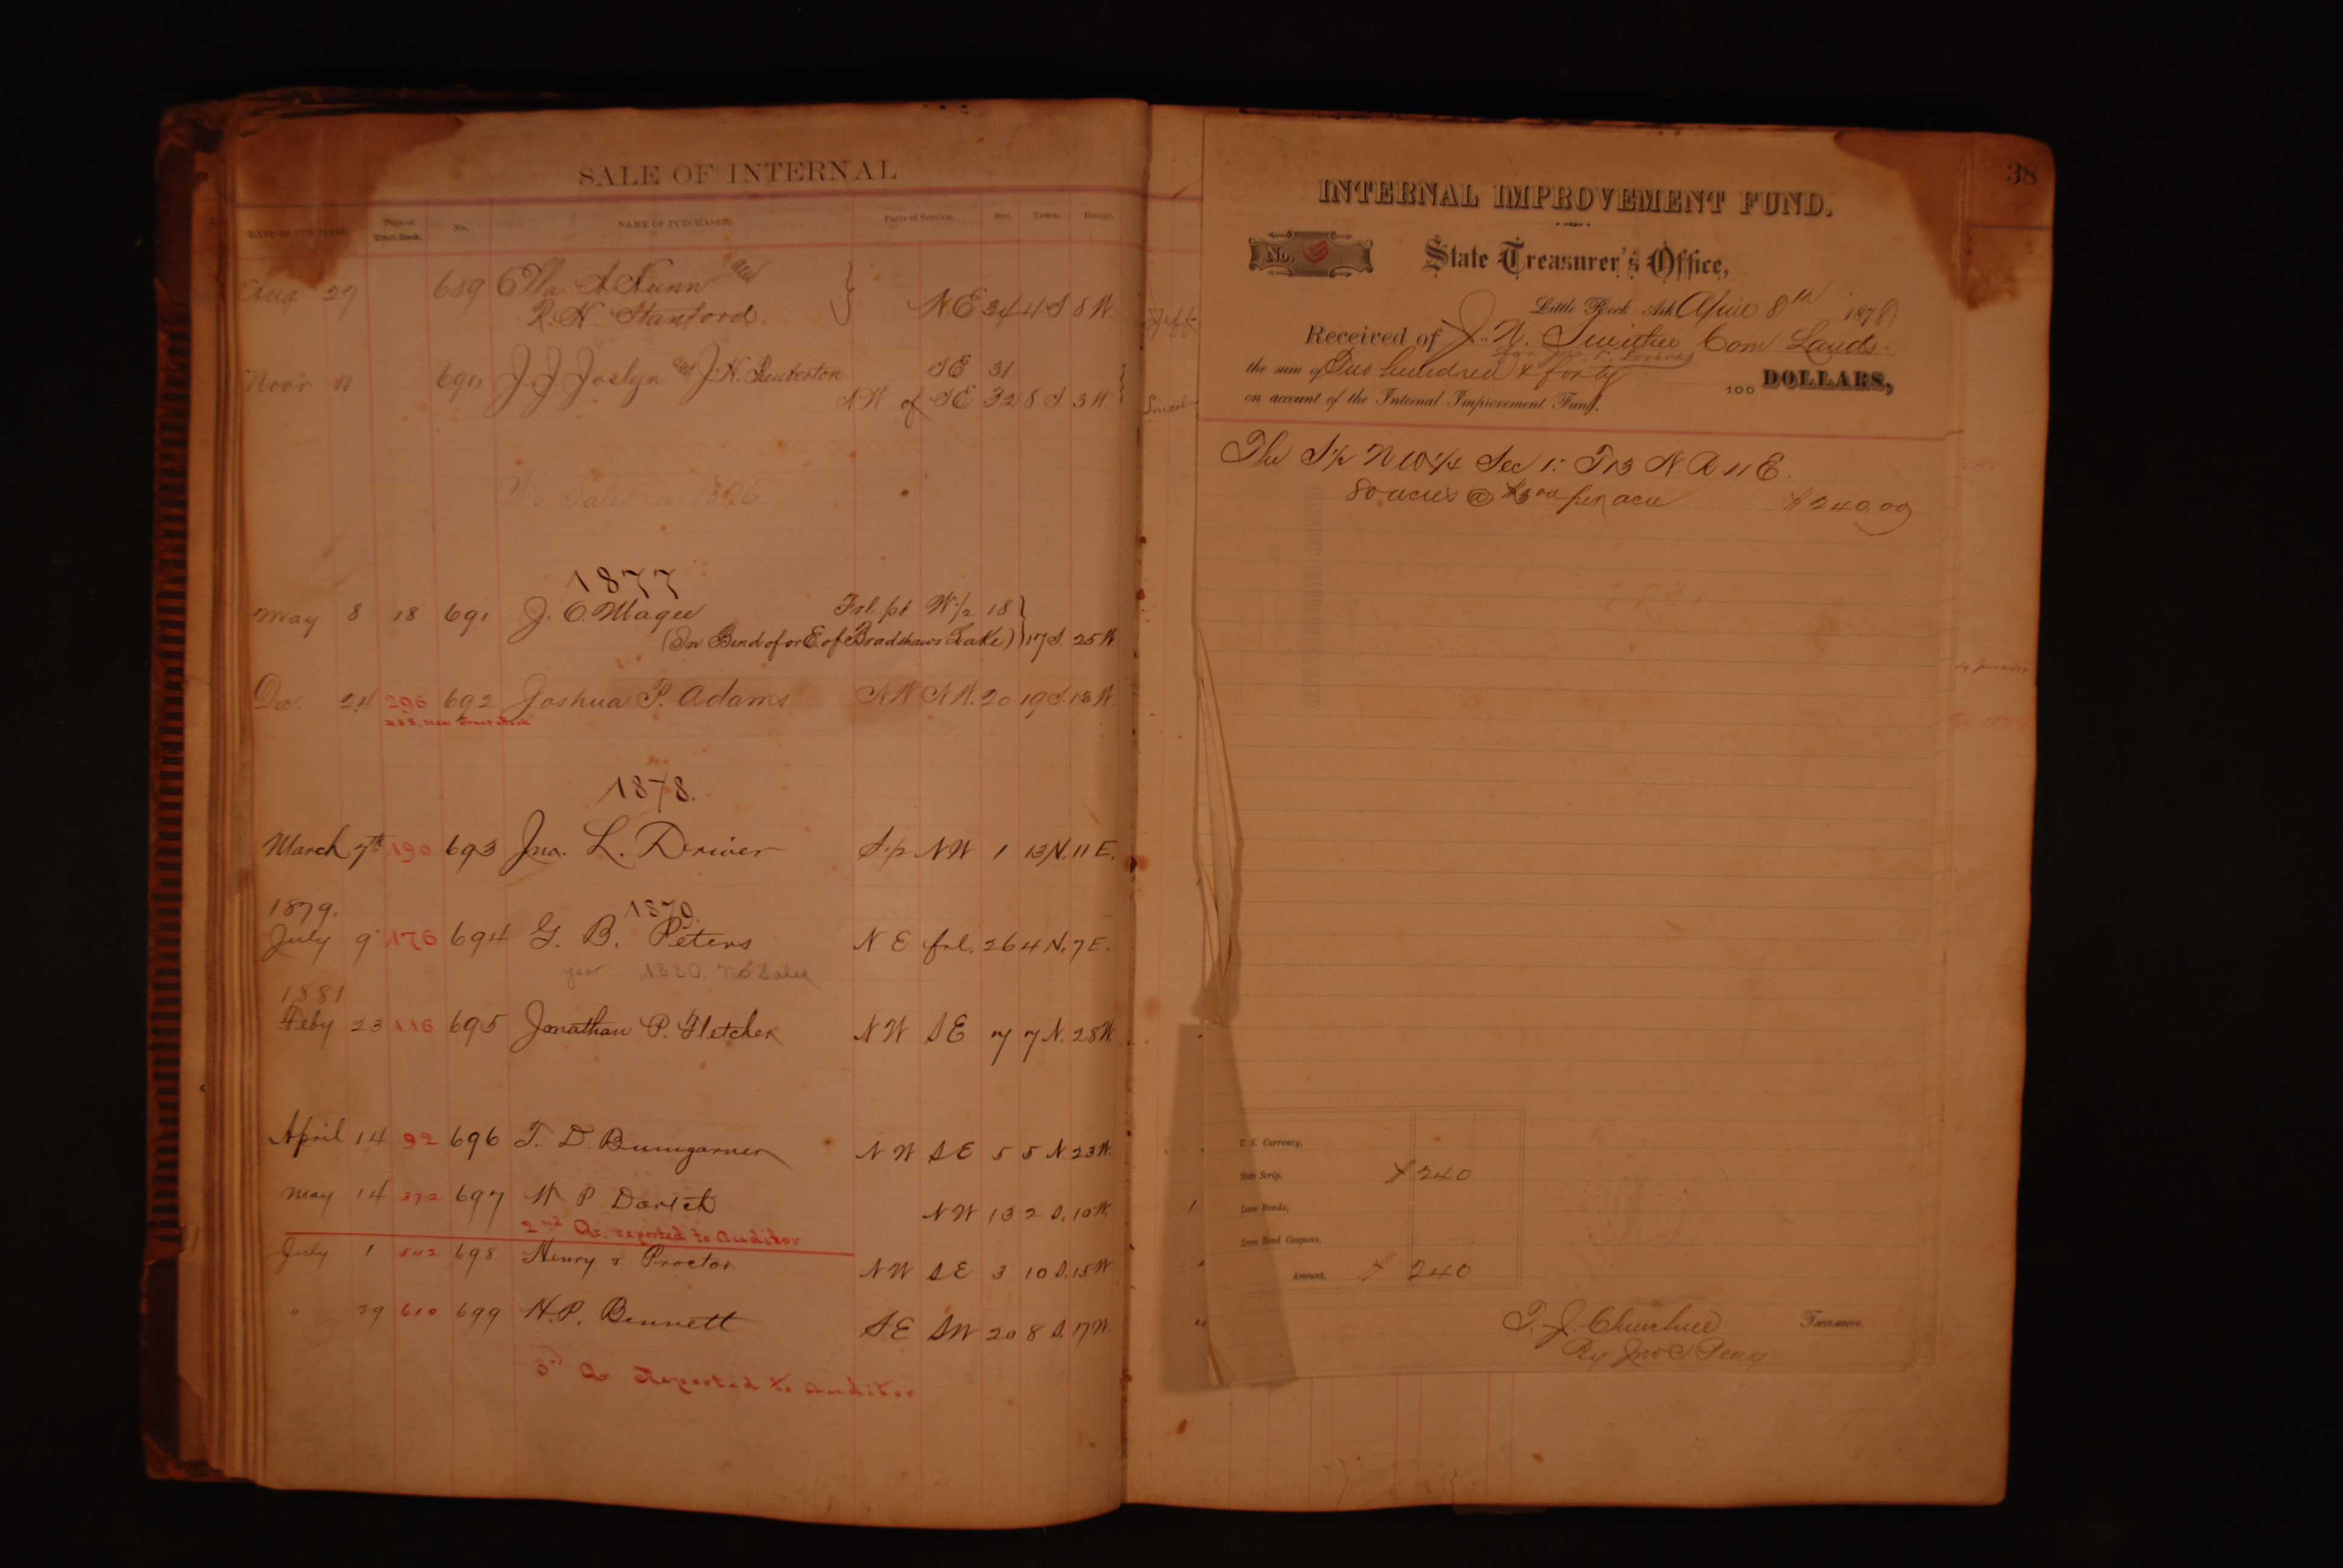 SALE OF INTERNAL
DATE OF PURCHASE. Page of Tract Book. No. NAME OF PURCHASER Parts of Section. Sec. Town. Range.
Aug 27 689 Ella A Nunn and
R. H. Stanford. N E 34 4 S 8 W. Jeff
Nov'r 11 690 J. J. Joslyn and J. H. S E 31
N W of S E 32 8 S. 3 W.
No Sales in 1876
1877
May 8 18 691 J. O. Magee Frl. pt W 1/2 18
(In Bend of or E. of Bradshaws Lake) 17 S. 25 W
Dec. 24 296 692 Joshua P. Adams N W N W. 20 19 S. 13 W.
288, New Tract Book
1878.
March 7th 190 693 Jno. L. Driver S 1/2 N W 1 13 N. 11 E.
1879. 1879.
July 9 176 694 G. B. Peters N E frl. 26 4 N. 7 E.
year 1880. no Sales
1881
Feby 23 116 695 Jonathan P. Fletcher N W S E 7 7 N. 28 W.
April 14 92 696 T. D Bumgarner N W S E 5 5 N. 23 W.
May 14 372 697 W P Dortch N W 13 2 S. 10 W.
2nd Qr. reported to Auditor
July 1 542 698 Henry & Proctor N W S E 3 10 S. 15 W
" 29 610 699 H. P. Bennett S E S W 20 8 S. 17 W.
3d Qr Reported to Auditor
38
INTERNAL IMPROVEMENT FUND.
No. 3 State Treasurer's Office,
Little Rock Ark April 8th 1878
Received of J. N. Smithee Com Lands.
for Jno. L. Driver
the sum of Two hundred & forty 100 DOLLARS,
on account of the Internal Improvement Fund.
The S 1/2 N W 1/4 Sec 1. T 13 N. R 11 E.
80 acres @ $3 00 per acre $240.00
U. S. Currency,
State Scrip, $ 240
Levee Bonds,
Levee Bond Coupons,
Amount, $ 240
T. J. Churchill Treasurer.
By Jno C Peay